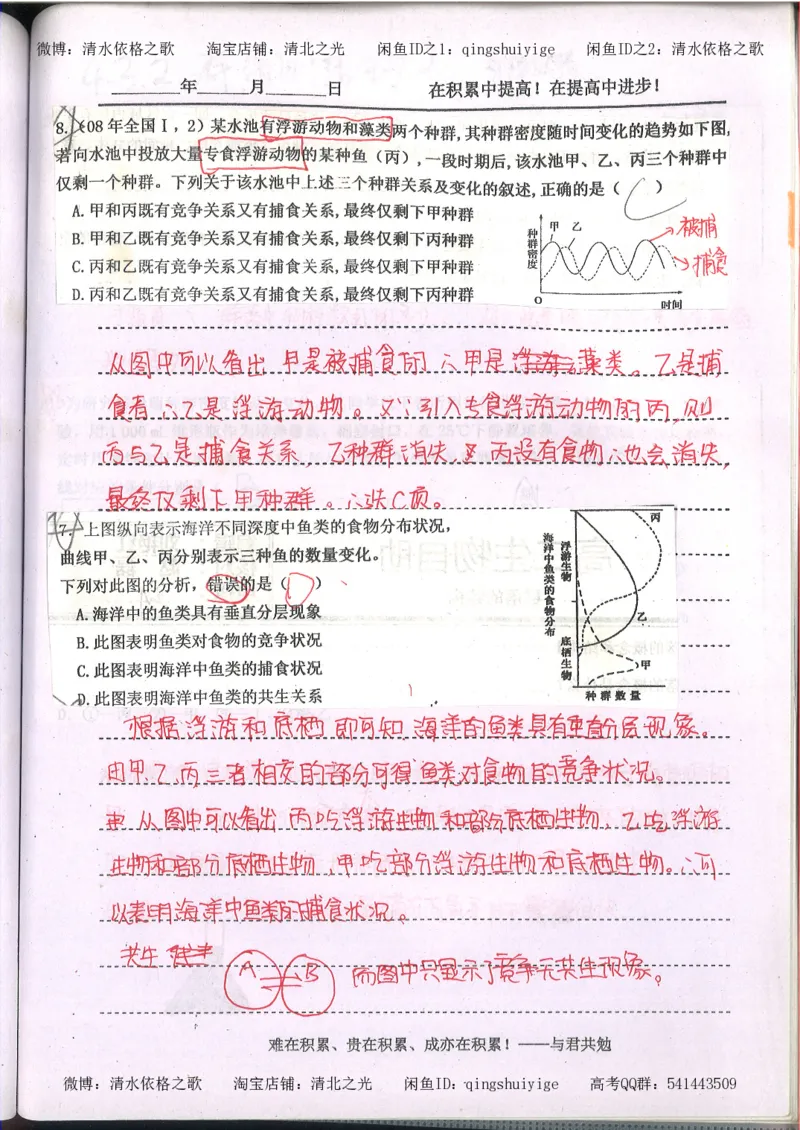 微博：清水依格之歌 淘宝店铺：清北之光 闲鱼ID之1：qingshuiyige 闲鱼ID之2：清水依格之歌
______年______月______日 在积累中提高！在提高中进步！
8.（08年全国Ⅰ，2）某水池有浮游动物和藻类两个种群，其种群密度随时间变化的趋势如下图，
若向水池中投放大量专食浮游动物的某种鱼（丙），一段时期后，该水池甲、乙、丙三个种群中
仅剩一个种群。下列关于该水池中上述三个种群关系及变化的叙述，正确的是（C）
A.甲和丙既有竞争关系又有捕食关系，最终仅剩下甲种群
B.甲和乙既有竞争关系又有捕食关系，最终仅剩下丙种群
C.丙和乙既有竞争关系又有捕食关系，最终仅剩下甲种群
D.丙和乙既有竞争关系又有捕食关系，最终仅剩下丙种群
种群密度
甲 乙
被捕
捕食
O
时间
从图中可以看出 甲是被捕食的 ∴甲是藻类。乙是捕
食者∴乙是浮游动物。又∵引入专食浮游动物的丙，则
丙与乙是捕食关系，乙种群消失又丙没有食物∴也会消失，
最终仅剩下甲种群。∴选C项。
7. 上图纵向表示海洋不同深度中鱼类的食物分布状况，
曲线甲、乙、丙分别表示三种鱼的数量变化。
下列对此图的分析，错误的是（D）
A.海洋中的鱼类具有垂直分层现象
B.此图表明鱼类对食物的竞争状况
C.此图表明海洋中鱼类的捕食状况
D.此图表明海洋中鱼类的共生关系
海洋中鱼类的食物分布
浮游生物
底栖生物
丙
乙
甲
种群数量
根据浮游和底栖即可知 海洋的鱼类具有垂直分层现象。
由甲、乙、丙三者相交的部分可得鱼类对食物的竞争状况。
从图中可以看出 丙吃浮游生物和部分底栖生物，乙吃浮游
生物和部分底栖生物，甲吃部分浮游生物和底栖生物。∴可
以表明海洋中鱼类的捕食状况。
共生
A B 而图中只显示了竞争无共生现象。
难在积累、贵在积累、成亦在积累！——与君共勉
微博：清水依格之歌 淘宝店铺：清北之光 闲鱼ID：qingshuiyige 高考QQ群：541443509